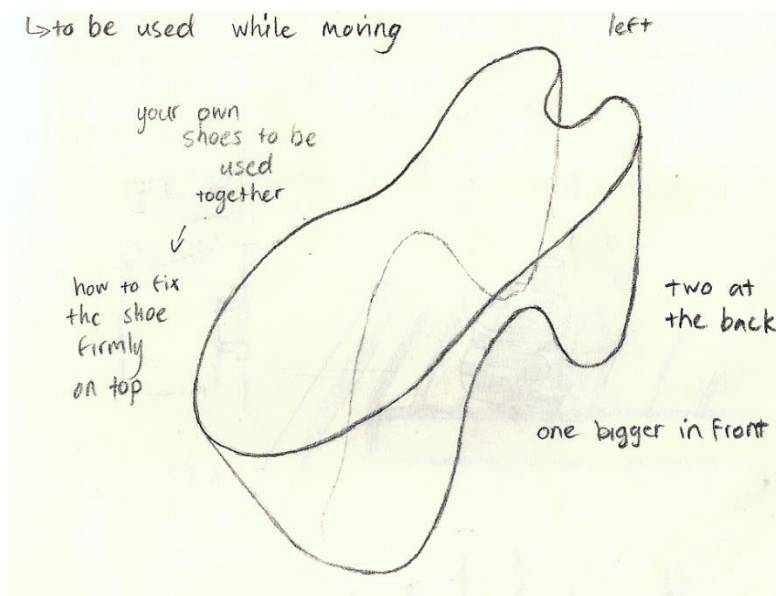 ↳to be used while moving
left
your own
shoes to be
used
together
how to fix
the shoe
firmly
on top
two at
the back
one bigger in front